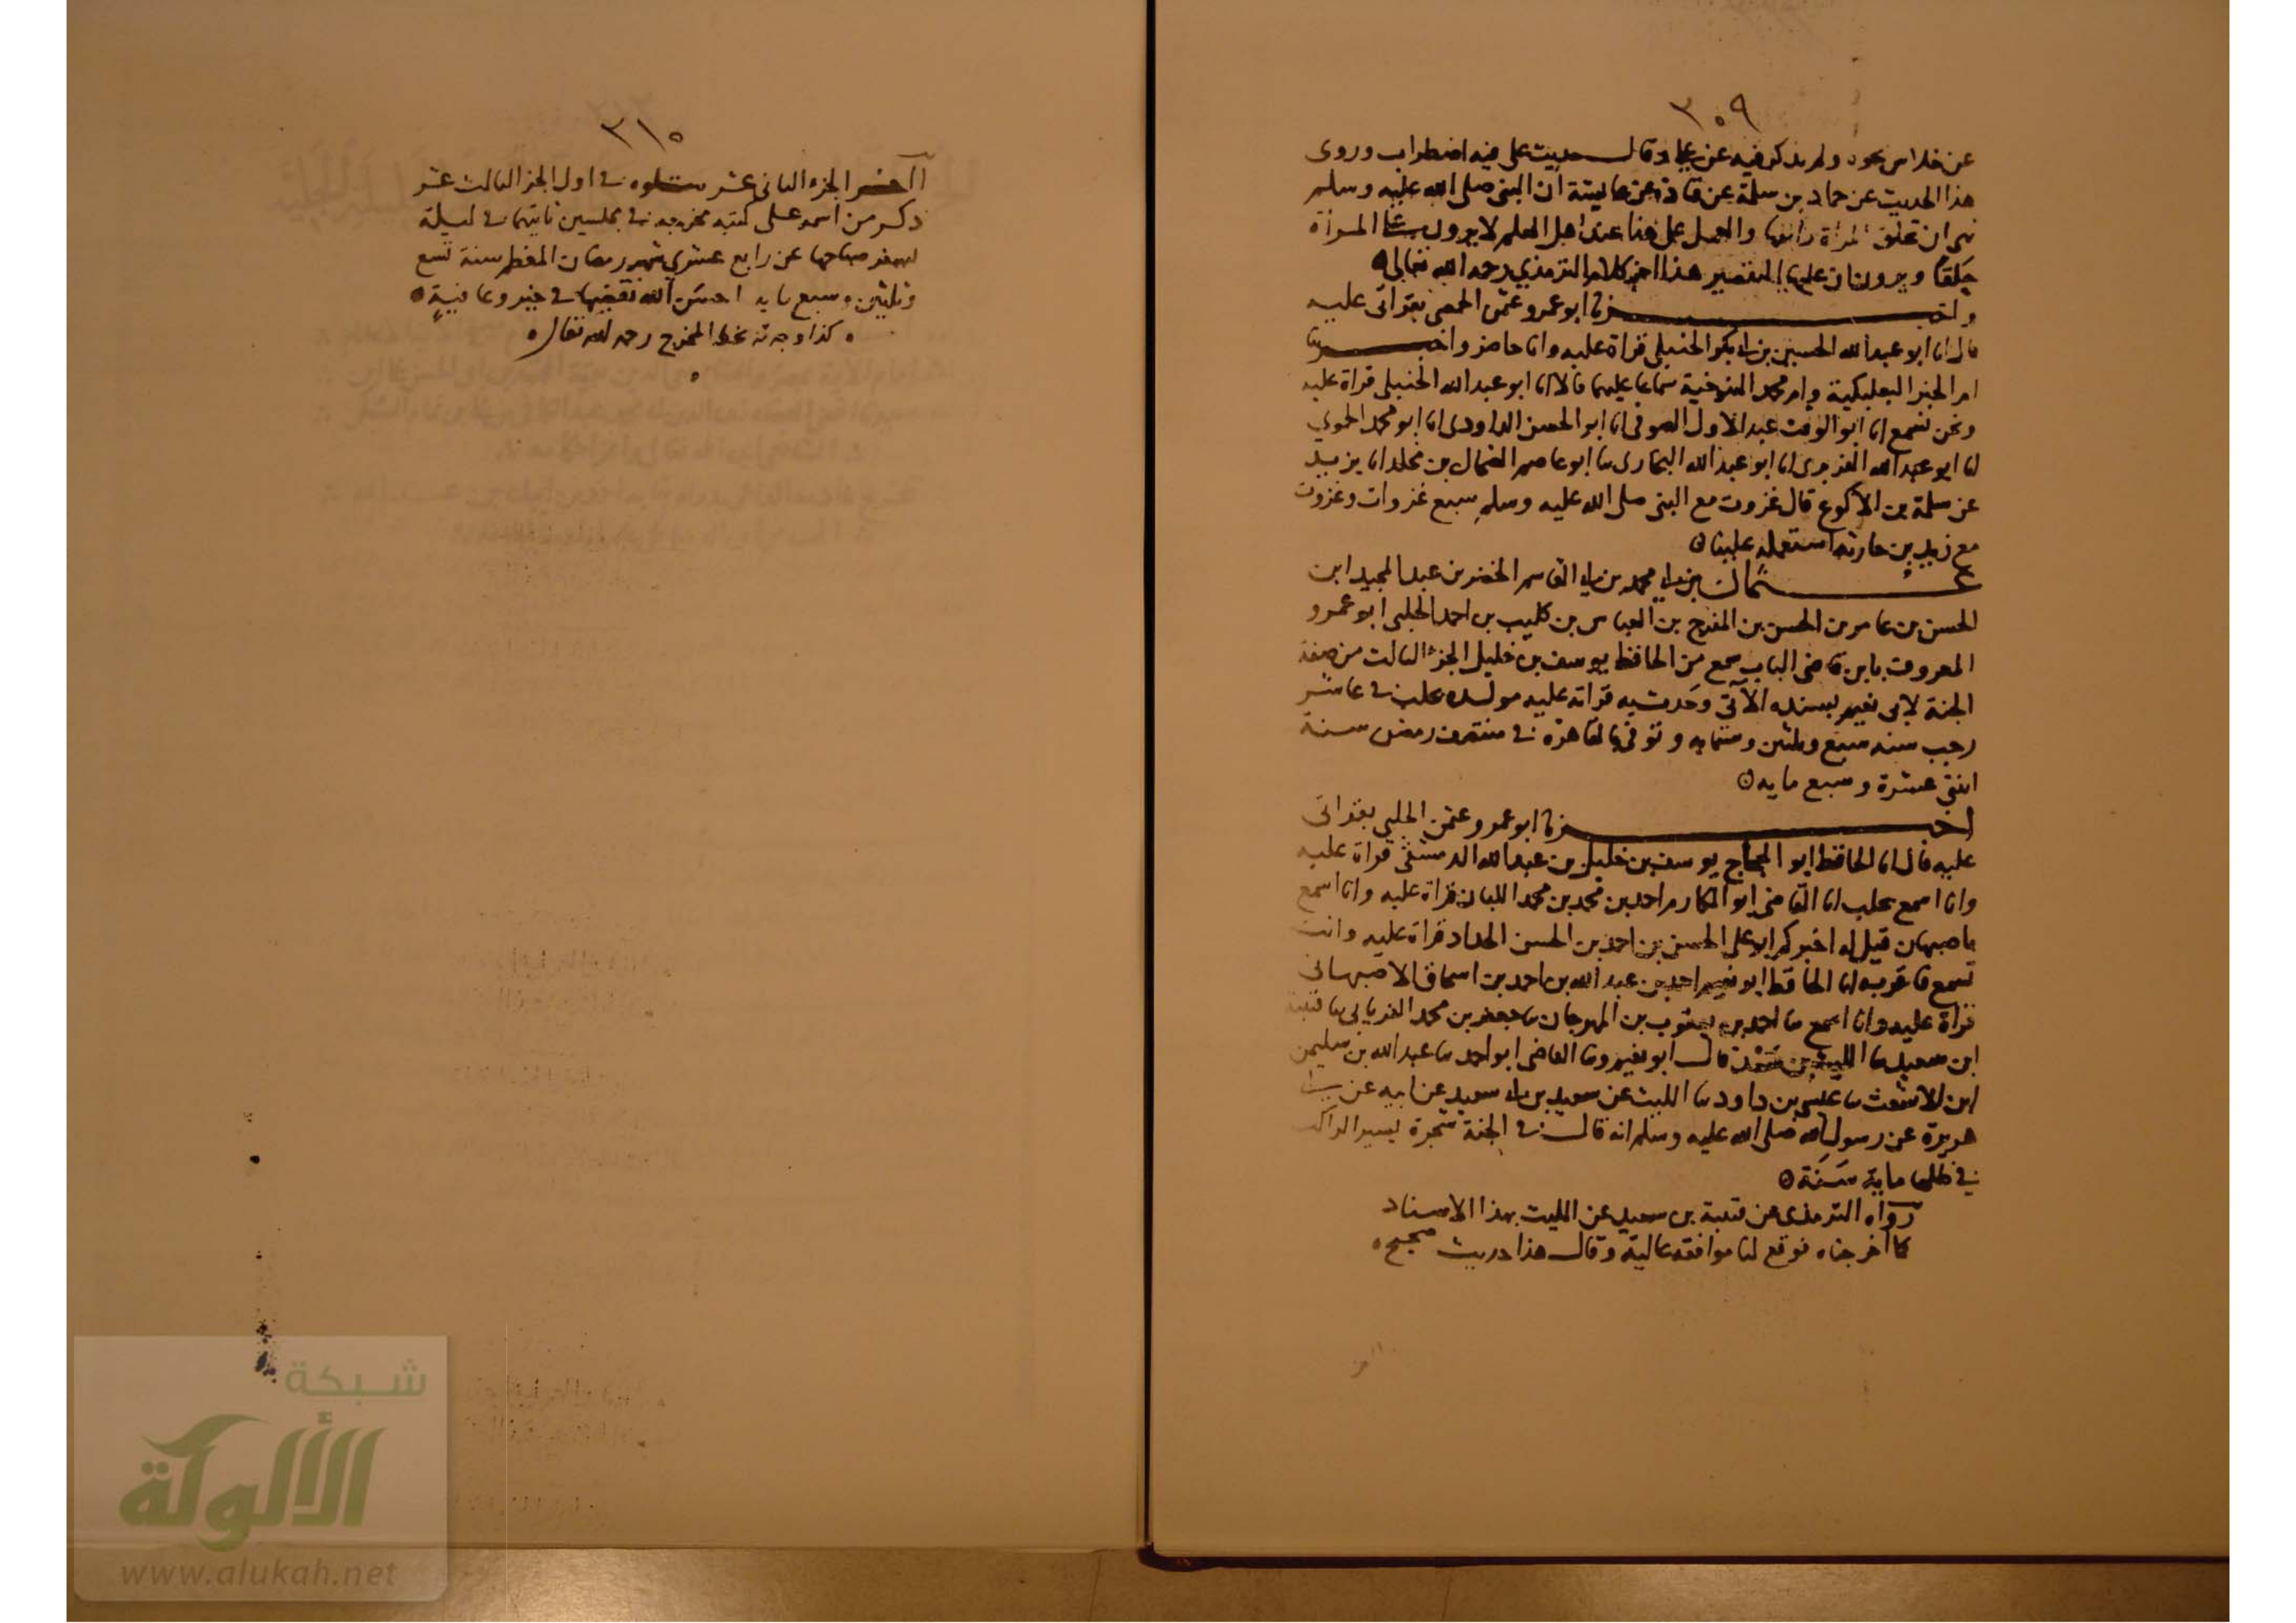 ٣٠٩
عن خلاس نحوه ولم يذكر فيه عن علي وقال حديث على فيه اضطراب وروى
هذا الحديث عن حماد بن سلمة عن قتادة عن عايشة ان النبي صلى الله عليه وسلم
نهى ان تحلق المرأة راسها والعمل على هذا عند اهل العلم لا يرون على المرأة
حلقا ويرون ان عليها التقصير هذا اخر كلام الترمذي رحمه الله تعالى
واخبرنا ابو عمرو عثمن الحمصي بقراتى عليه
قال انا ابو عبد الله الحسين بن ابي بكر الحنبلي قراة عليه وانا حاضر واخبرتنا
ام الخير البعلبكية وام محمد التنوخية سماعا عليهما قالا انا ابو عبد الله الحنبلي قراة عليه
ونحن نسمع انا ابو الوقت عبد الاول الصوفي انا ابو الحسن الداودى انا ابو محمد الحموي
انا ابو عبد الله الفربرى انا ابو عبد الله البخارى ثنا ابو عاصم الضحاك بن مخلد انا يزيد
عن سلمة بن الاكوع قال غزوت مع النبي صلى الله عليه وسلم سبع غزوات وغزوت
مع زيد بن حارثة استعمله علينا
عثمان بن ابي محمد بن ابي القاسم الخضر بن عبد المجيد ابن
الحسن بن عامر بن الحسن بن المفرج بن العباس بن كليب بن احمد الحلبى ابو عمرو
المعروف بابن قاضى الباب سمع من الحافظ يوسف بن خليل الجزء الثالث من صفة
الجنة لابى نعيم بسنده الآتي وحدث به قراته عليه مولده بحلب في عاشر
رجب سنه سبع وثلثين وستمايه وتوفي بالقاهرة في منتصف رمضن سنة
اثنتي عشرة وسبع مايه
اخبرنا ابو عمرو عثمن الحلبي بقراتى
عليه قال انا الحافظ ابو الحجاج يوسف بن خليل بن عبد الله الدمشقي قراة عليه
وانا اسمع بحلب انا القاضى ابو المكارم احمد بن محمد بن محمد اللبان قراة عليه وانا اسمع
باصبهان قيل له اخبركم ابو على الحسن بن احمد بن الحسن الحداد قراة عليه وانت
تسمع فاقر به انا الحافظ ابو نعيم احمد بن عبد الله بن احمد بن اسحاق الاصبهانى
قراة عليه وانا اسمع ثنا احمد بن يعقوب بن المهرجان ثنا جعفر بن محمد الفريابي ثنا قتيبة
ابن سعيد ثنا الليث بن سعد قال ابو نعيم وثنا القاضى ابو احمد ثنا عبد الله بن سليمن
ابن الاشعث ثنا عيسى بن داود ثنا الليث عن سعيد بن ابي سعيد عن ابيه عن ابي
هريرة عن رسول الله صلى الله عليه وسلم انه قال في الجنة شجرة يسير الراكب
في ظلها ماية سَنَة
رواه الترمذى عن قتيبة بن سعيد عن الليث بهذا الاسناد
كما اخرجناه فوقع لنا موافقه عالية وقال هذا حديث صحيح
٣١٠
اخر الجزء الثانى عشر يتلوه في اول الجز الثالث عشر
ذكر من اسمه على كتبه مخرجه في مجلسين ثانيهما في ليلة
يسفر صباحها عن رابع عشري شهر رمضان المعظم سنة تسع
وثلثين وسبع مايه احسن الله تقضيها في خير وعافية
كذا وجدته بخط المخرج رحمه الله تعالى
شبكة
الألوكة
www.alukah.net